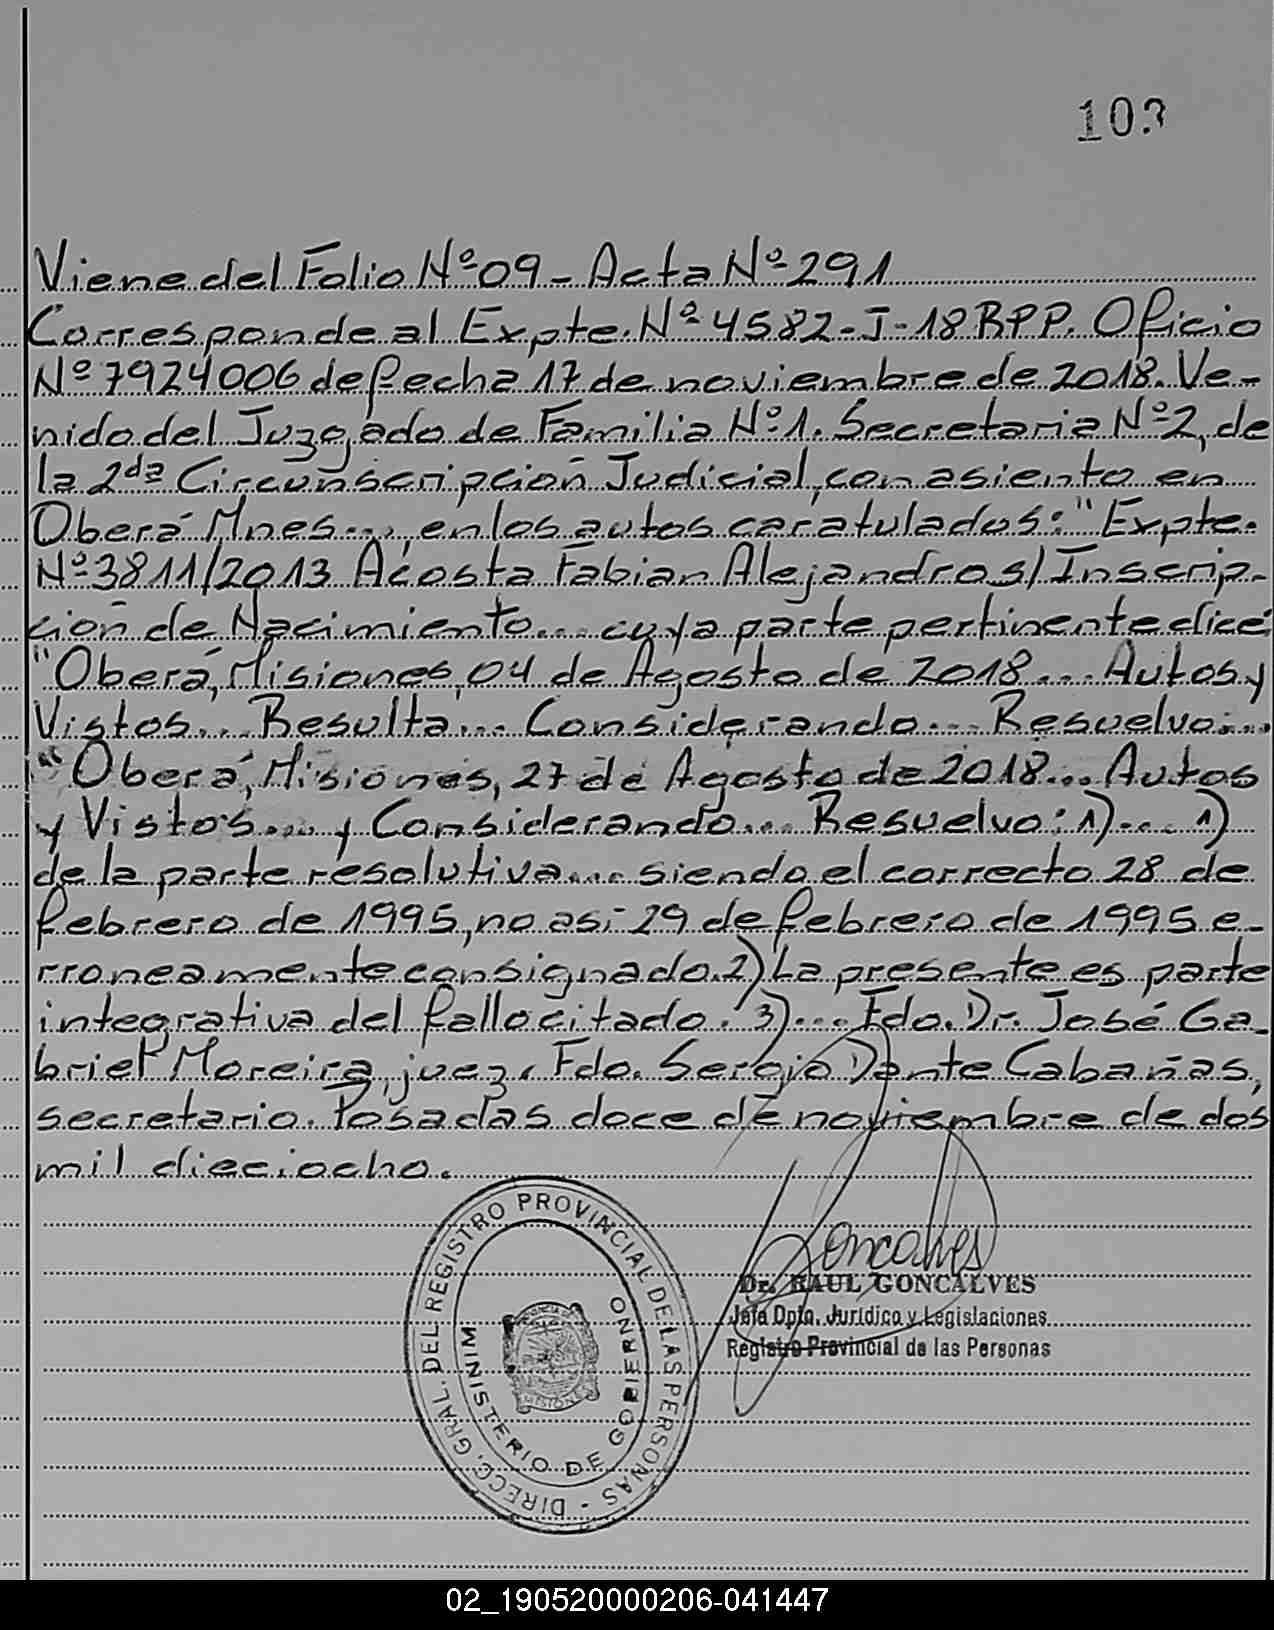 103
Viene del Folio Nº 09 - Acta Nº 291
Corresponde al Expte. Nº 4582-J-18 RPP. Oficio
Nº 7924006 de fecha 17 de noviembre de 2018. Ve-
nido del Juzgado de Familia Nº 1. Secretaria Nº 2, de
la 2da Circunscripción Judicial, con asiento en
Oberá Mnes..., en los autos caratulados: "Expte.
Nº 3811/2013 Acosta Fabian Alejandro s/ Inscrip-
ción de Nacimiento... cuya parte pertinente dice:
"Oberá, Misiones, 04 de Agosto de 2018.... Autos y
Vistos.... Resulta.... Considerando.... Resuelvo:....
"Oberá, Misiones, 27 de Agosto de 2018... Autos
y Vistos.... y Considerando.... Resuelvo: 1).... 1)
de la parte resolutiva.... siendo el correcto 28 de
febrero de 1995, no asi 29 de febrero de 1995 e-
rroneamente consignado. 2) La presente es parte
integrativa del fallo citado. 3).... Fdo. Dr. José Ga-
briel Moreira, juez. Fdo. Sergio Dante Cabañas,
secretario. Posadas doce de noviembre de dos
mil dieciocho.
DIRECC. GRAL. DEL REGISTRO PROVINCIAL DE LAS PERSONAS -
MINISTERIO DE GOBIERNO
MISIONES
Goncalves
Dr. RAUL GONCALVES
Jefe Dpto. Jurídico y Legislaciones
Registro Provincial de las Personas
02_190520000206-041447